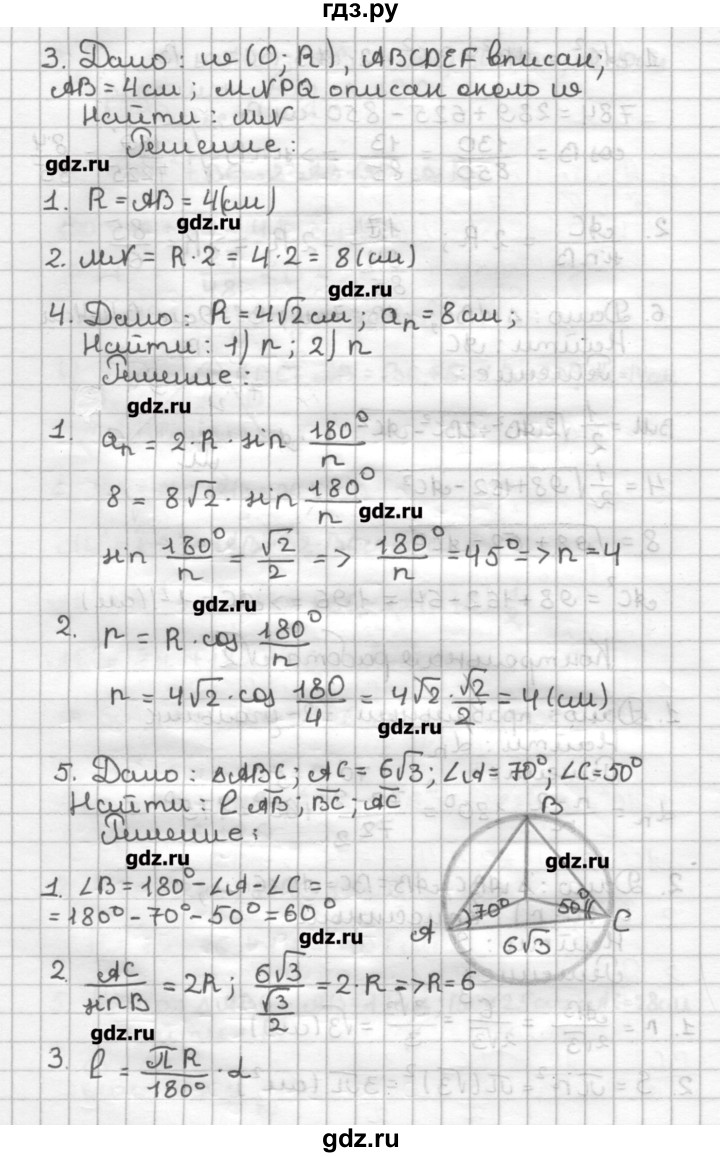 гдз.ру
3. Дано: ω(O; R), ABCDEF вписан;
AB = 4см; MNPQ описан около ω
Найти: MN
Решение:
gdz.ru
1. R = AB = 4(см)
gdz.ru
2. MN = R·2 = 4·2 = 8(см)
gdz.ru
4. Дано: R = 4√2 см; aₙ = 8см;
Найти: 1) n; 2) r
Решение:
gdz.ru
1. aₙ = 2·R·sin 180°/n
8 = 8√2·sin 180°/n
gdz.ru
sin 180°/n = √2/2 => 180°/n = 45° => n = 4
gdz.ru
2. r = R·cos 180°/n
r = 4√2·cos 180/4 = 4√2·√2/2 = 4(см)
gdz.ru
5. Дано: ΔABC; AC = 6√3; ∠A = 70°; ∠C = 50°
Найти: l AB; BC; AC
Решение:
B
gdz.ru
gdz.ru
1. ∠B = 180° - ∠A - ∠C =
= 180° - 70° - 50° = 60°
70°
50°
A
C
gdz.ru
6√3
2. AC/sinB = 2R; 6√3/(√3/2) = 2·R => R = 6
gdz.ru
3. l = πR/180°·α
gdz.ru